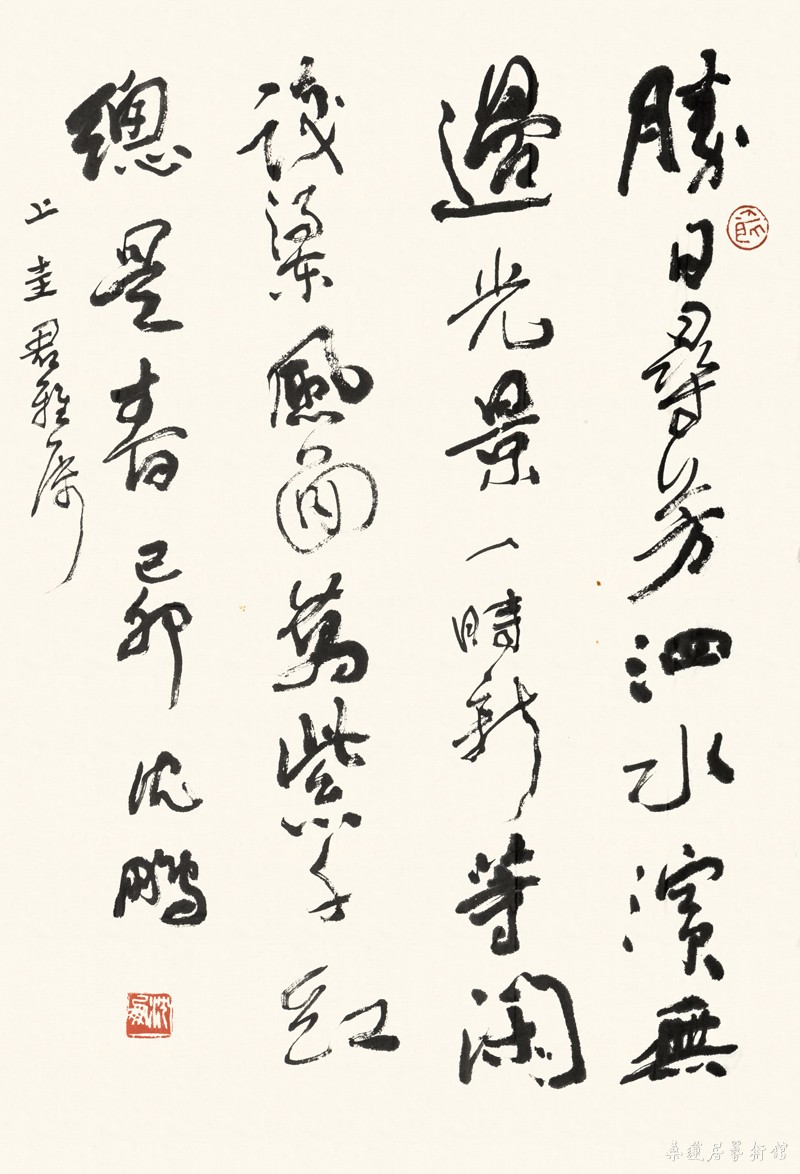 勝日尋芳泗水濱無
邊光景一時新等閑
識得東風面萬紫千紅
總是春己卯沈鵬
上圭君雅屬
沈鵬
桑蓮居藝術館